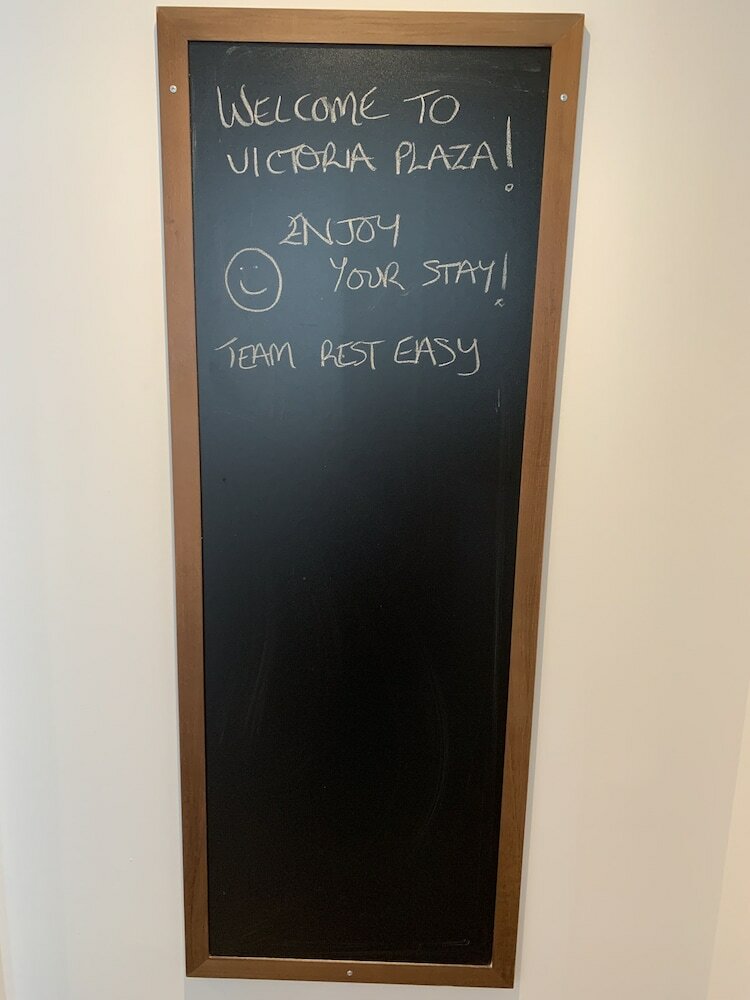 WELCOME TO
VICTORIA PLAZA!
ENJOY
YOUR STAY!
TEAM REST EASY